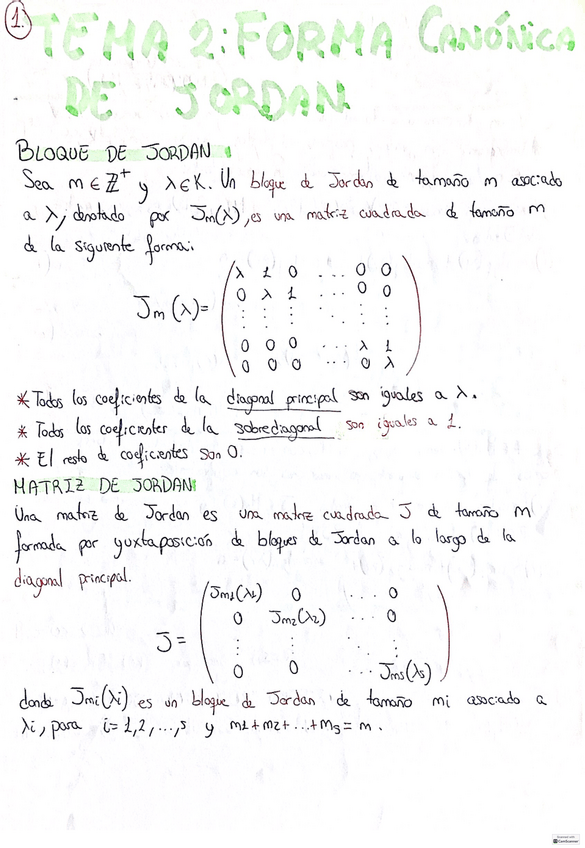 1.
TEMA 2: FORMA CANÓNICA
DE JORDAN
BLOQUE DE JORDAN
Sea m ∈ ℤ⁺ y λ ∈ K. Un bloque de Jordan de tamaño m asociado
a λ, denotado por Jm(λ), es una matriz cuadrada de tamaño m
de la siguiente forma:
λ 1 0 ... 0 0
0 λ 1 ... 0 0
Jm(λ) =
⋮ ⋮ ⋮ ⋱ ⋮ ⋮
0 0 0 ... λ 1
0 0 0 ... 0 λ
* Todos los coeficientes de la diagonal principal son iguales a λ.
* Todos los coeficientes de la sobrediagonal son iguales a 1.
* El resto de coeficientes son 0.
MATRIZ DE JORDAN
Una matriz de Jordan es una matriz cuadrada J de tamaño m
formada por yuxtaposición de bloques de Jordan a lo largo de la
diagonal principal.
Jm1(λ1) 0 ... 0
0 Jm2(λ2) ... 0
J =
⋮ ⋮ ⋱ ⋮
0 0 ... Jms(λs)
donde Jmi(λi) es un bloque de Jordan de tamaño mi asociado a
λi, para i = 1,2,...,s y m1+m2+...+ms = m.
CamScanner